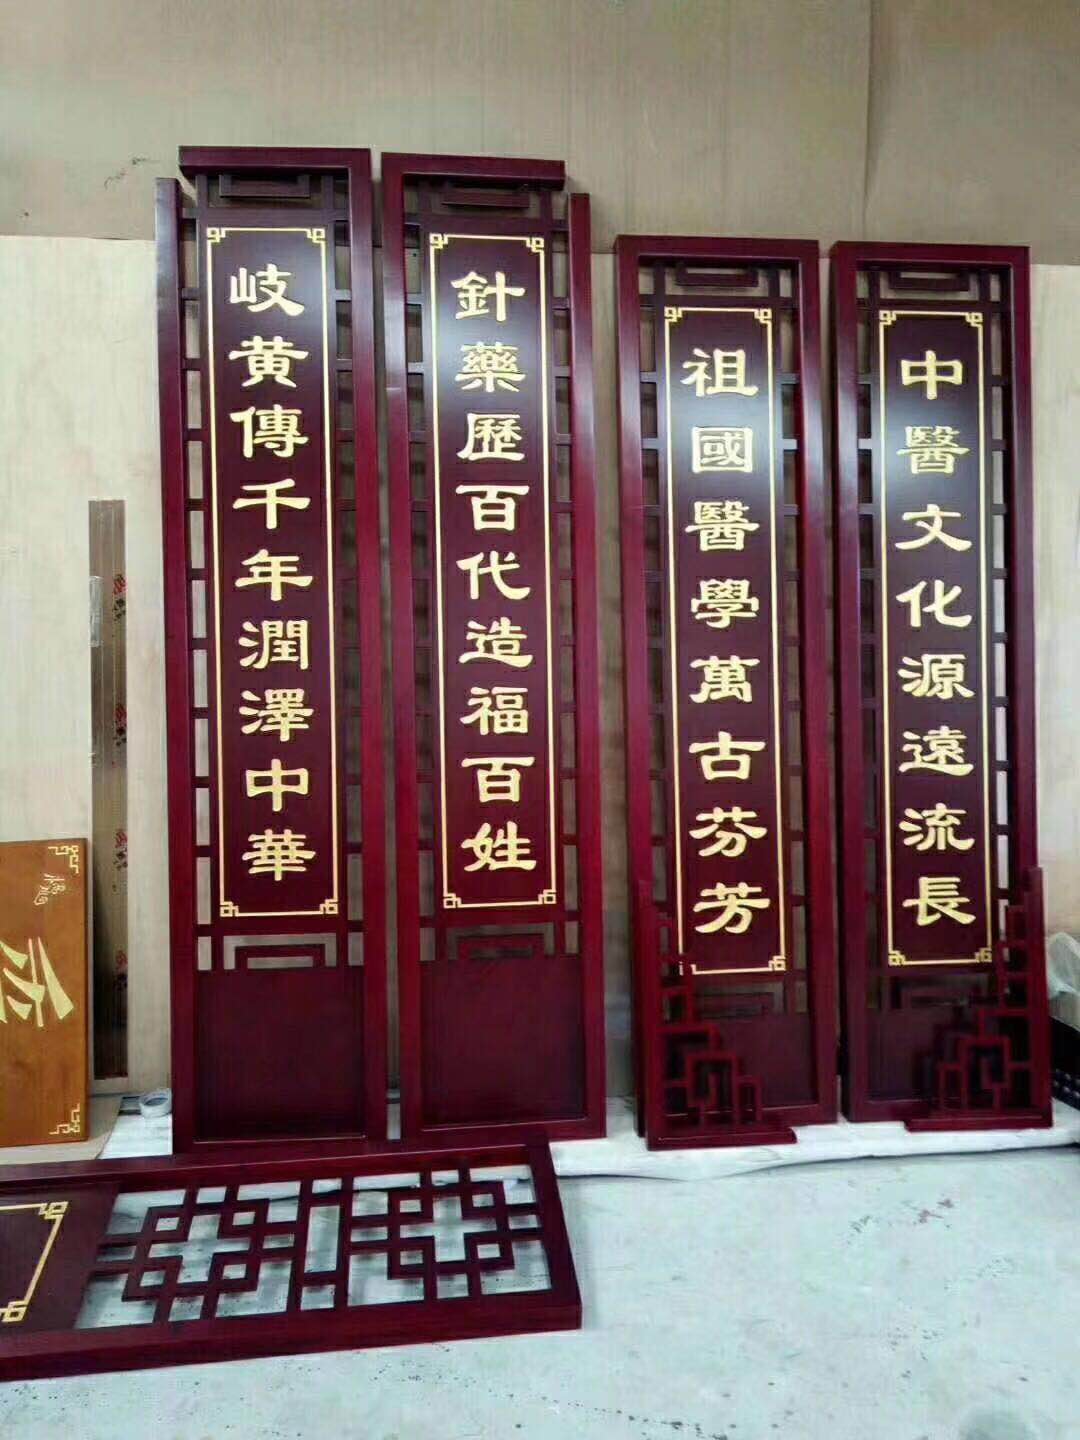 岐黄傳千年潤澤中華
針藥歷百代造福百姓
祖國醫學萬古芬芳
中醫文化源遠流長